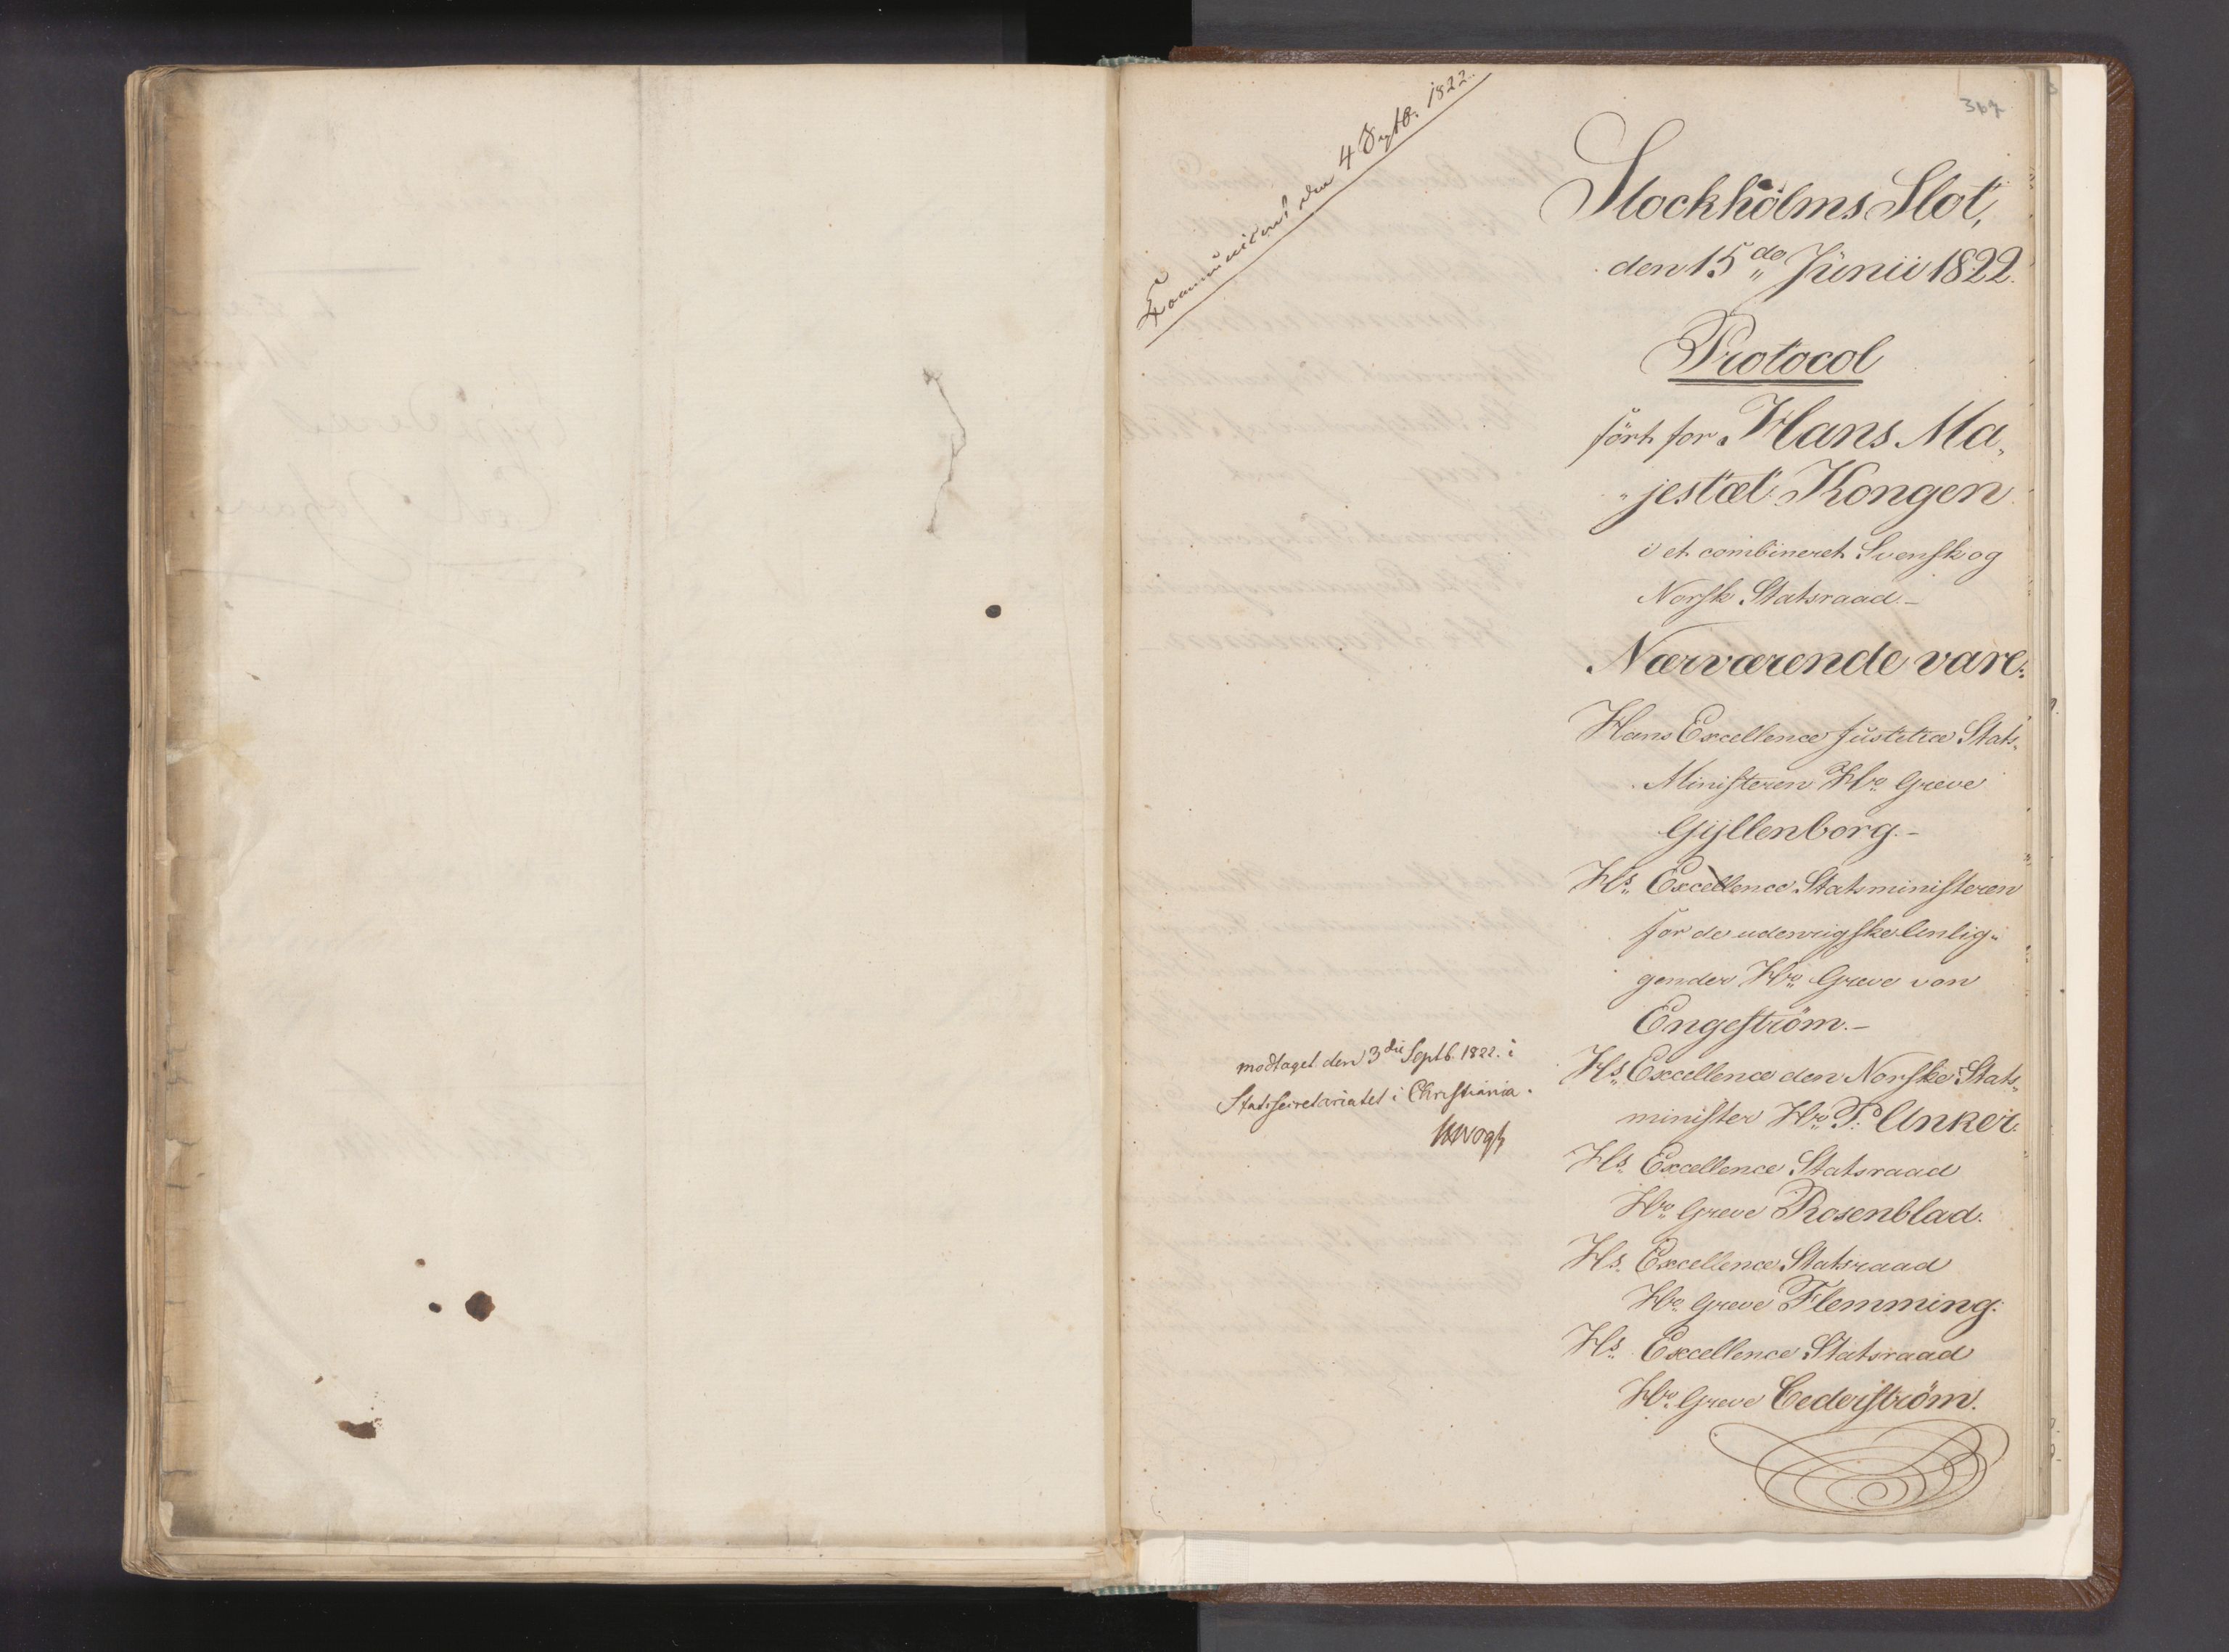 Communiceret den 4 Septb: 1822.
Stockholms Slot,
den 15de Junii 1822.
Protocol
ført for Hans Ma„
„jestæt Kongen
i et combineret Svensk og
Norsk Statsraad.-
Nærværende vare:
Hans Excellence Justitia Stats„
Ministeren Hr. Greve
Gyllenborg.-
Hs. Excellence Statsministeren
for de udenrigske Anlig„
gender Hr. Greve von
Engeström.-
modtaget den 3die Septb. 1822. i
Statssecretariatet i Christiania.
Hs. Excellence den Norske Stats„
minister Hr. P: Anker.
Hs. Excellence Statsraad
Hr. Greve Rosenblad.
Hs. Excellence Statsraad
Hr. Greve Flemming.
Hs. Excellence Statsraad
Hr. Greve Cederström.